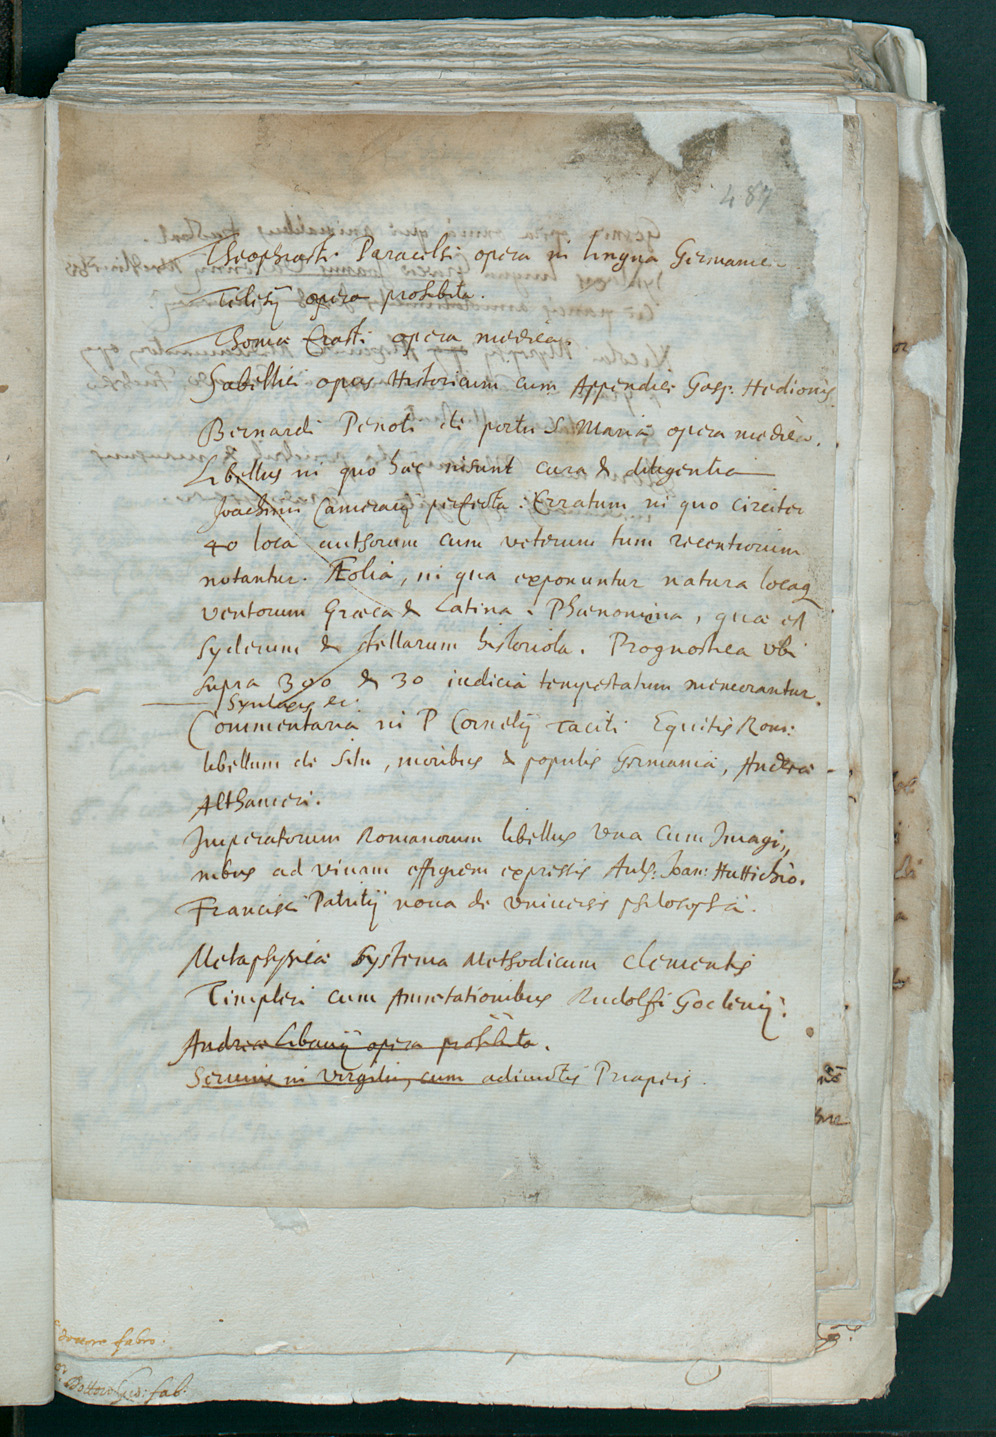 487
Theophrasti Paracelsi opera in lingua Germanica
Telesij opera prohibita.
Thomæ Erasti opera medica.
Sabellici opus Historicum cum Appendice Gasp: Hedionis.
Bernardi Penoti de portu S. Mariæ opera medica.
Libellus in quo hæc insunt cura & diligentia
Joachimi Camerarij perfecta. Erratum in quo circiter
40 loca authorum cum veterum tum recentiorum
notantur. Æolia, in qua exponuntur natura locaq
ventorum Græca & Latina. Phænomena, quæ est
syderum & stellarum historiola. Prognostica ubi
supra 300 & 30 indicia tempestatum memorantur.
Syntaxis &c.
Commentaria in P Cornelij Taciti Equitis Rom:
libellum de situ, moribus & populis Germaniæ, Andreæ
Althameri.
Imperatorum Romanorum libellus una cum Imagi„
nibus ad vivam effigiem expressis Auth: Joan: Huttichio.
Francisci Patritij nova de universis philosophia.
Metaphysicæ Systema Methodicum Clementis
Timpleri cum Annotationibus Rudolfi Goclenij.
Andreæ Libavij opera prohibita.
Servius in Virgilium, cum adiunctis Priapeis.
fabro.